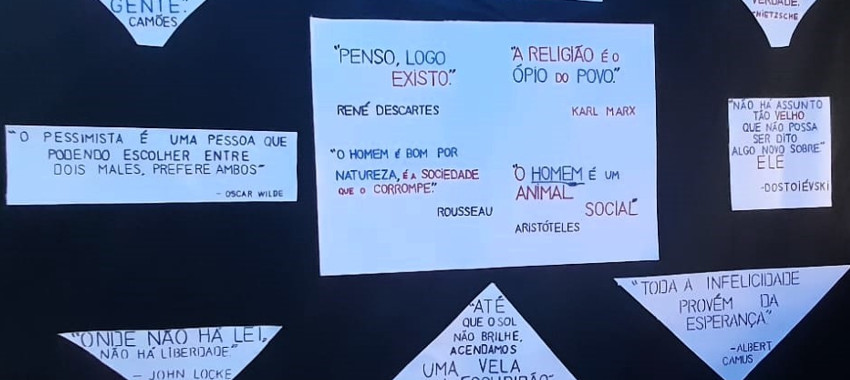 GENTE."
CAMÕES
VERDADE.
NIETZSCHE
"PENSO, LOGO
EXISTO."
RENÉ DESCARTES
"A RELIGIÃO É O
ÓPIO DO POVO."
KARL MARX
"O HOMEM É BOM POR
NATUREZA, É A SOCIEDADE
QUE O CORROMPE."
ROUSSEAU
"O HOMEM É UM
ANIMAL
SOCIAL"
ARISTÓTELES
"O PESSIMISTA É UMA PESSOA QUE
PODENDO ESCOLHER ENTRE
DOIS MALES, PREFERE AMBOS"
- OSCAR WILDE
"NÃO HÁ ASSUNTO
TÃO VELHO
QUE NÃO POSSA
SER DITO
ALGO NOVO SOBRE"
ELE
-DOSTOIÉVSKI
"ONDE NÃO HÁ LEI,
NÃO HÁ LIBERDADE."
- JOHN LOCKE
"ATÉ
QUE O SOL
NÃO BRILHE,
ACENDAMOS
UMA VELA
"TODA A INFELICIDADE
PROVÉM DA
ESPERANÇA"
-ALBERT
CAMUS